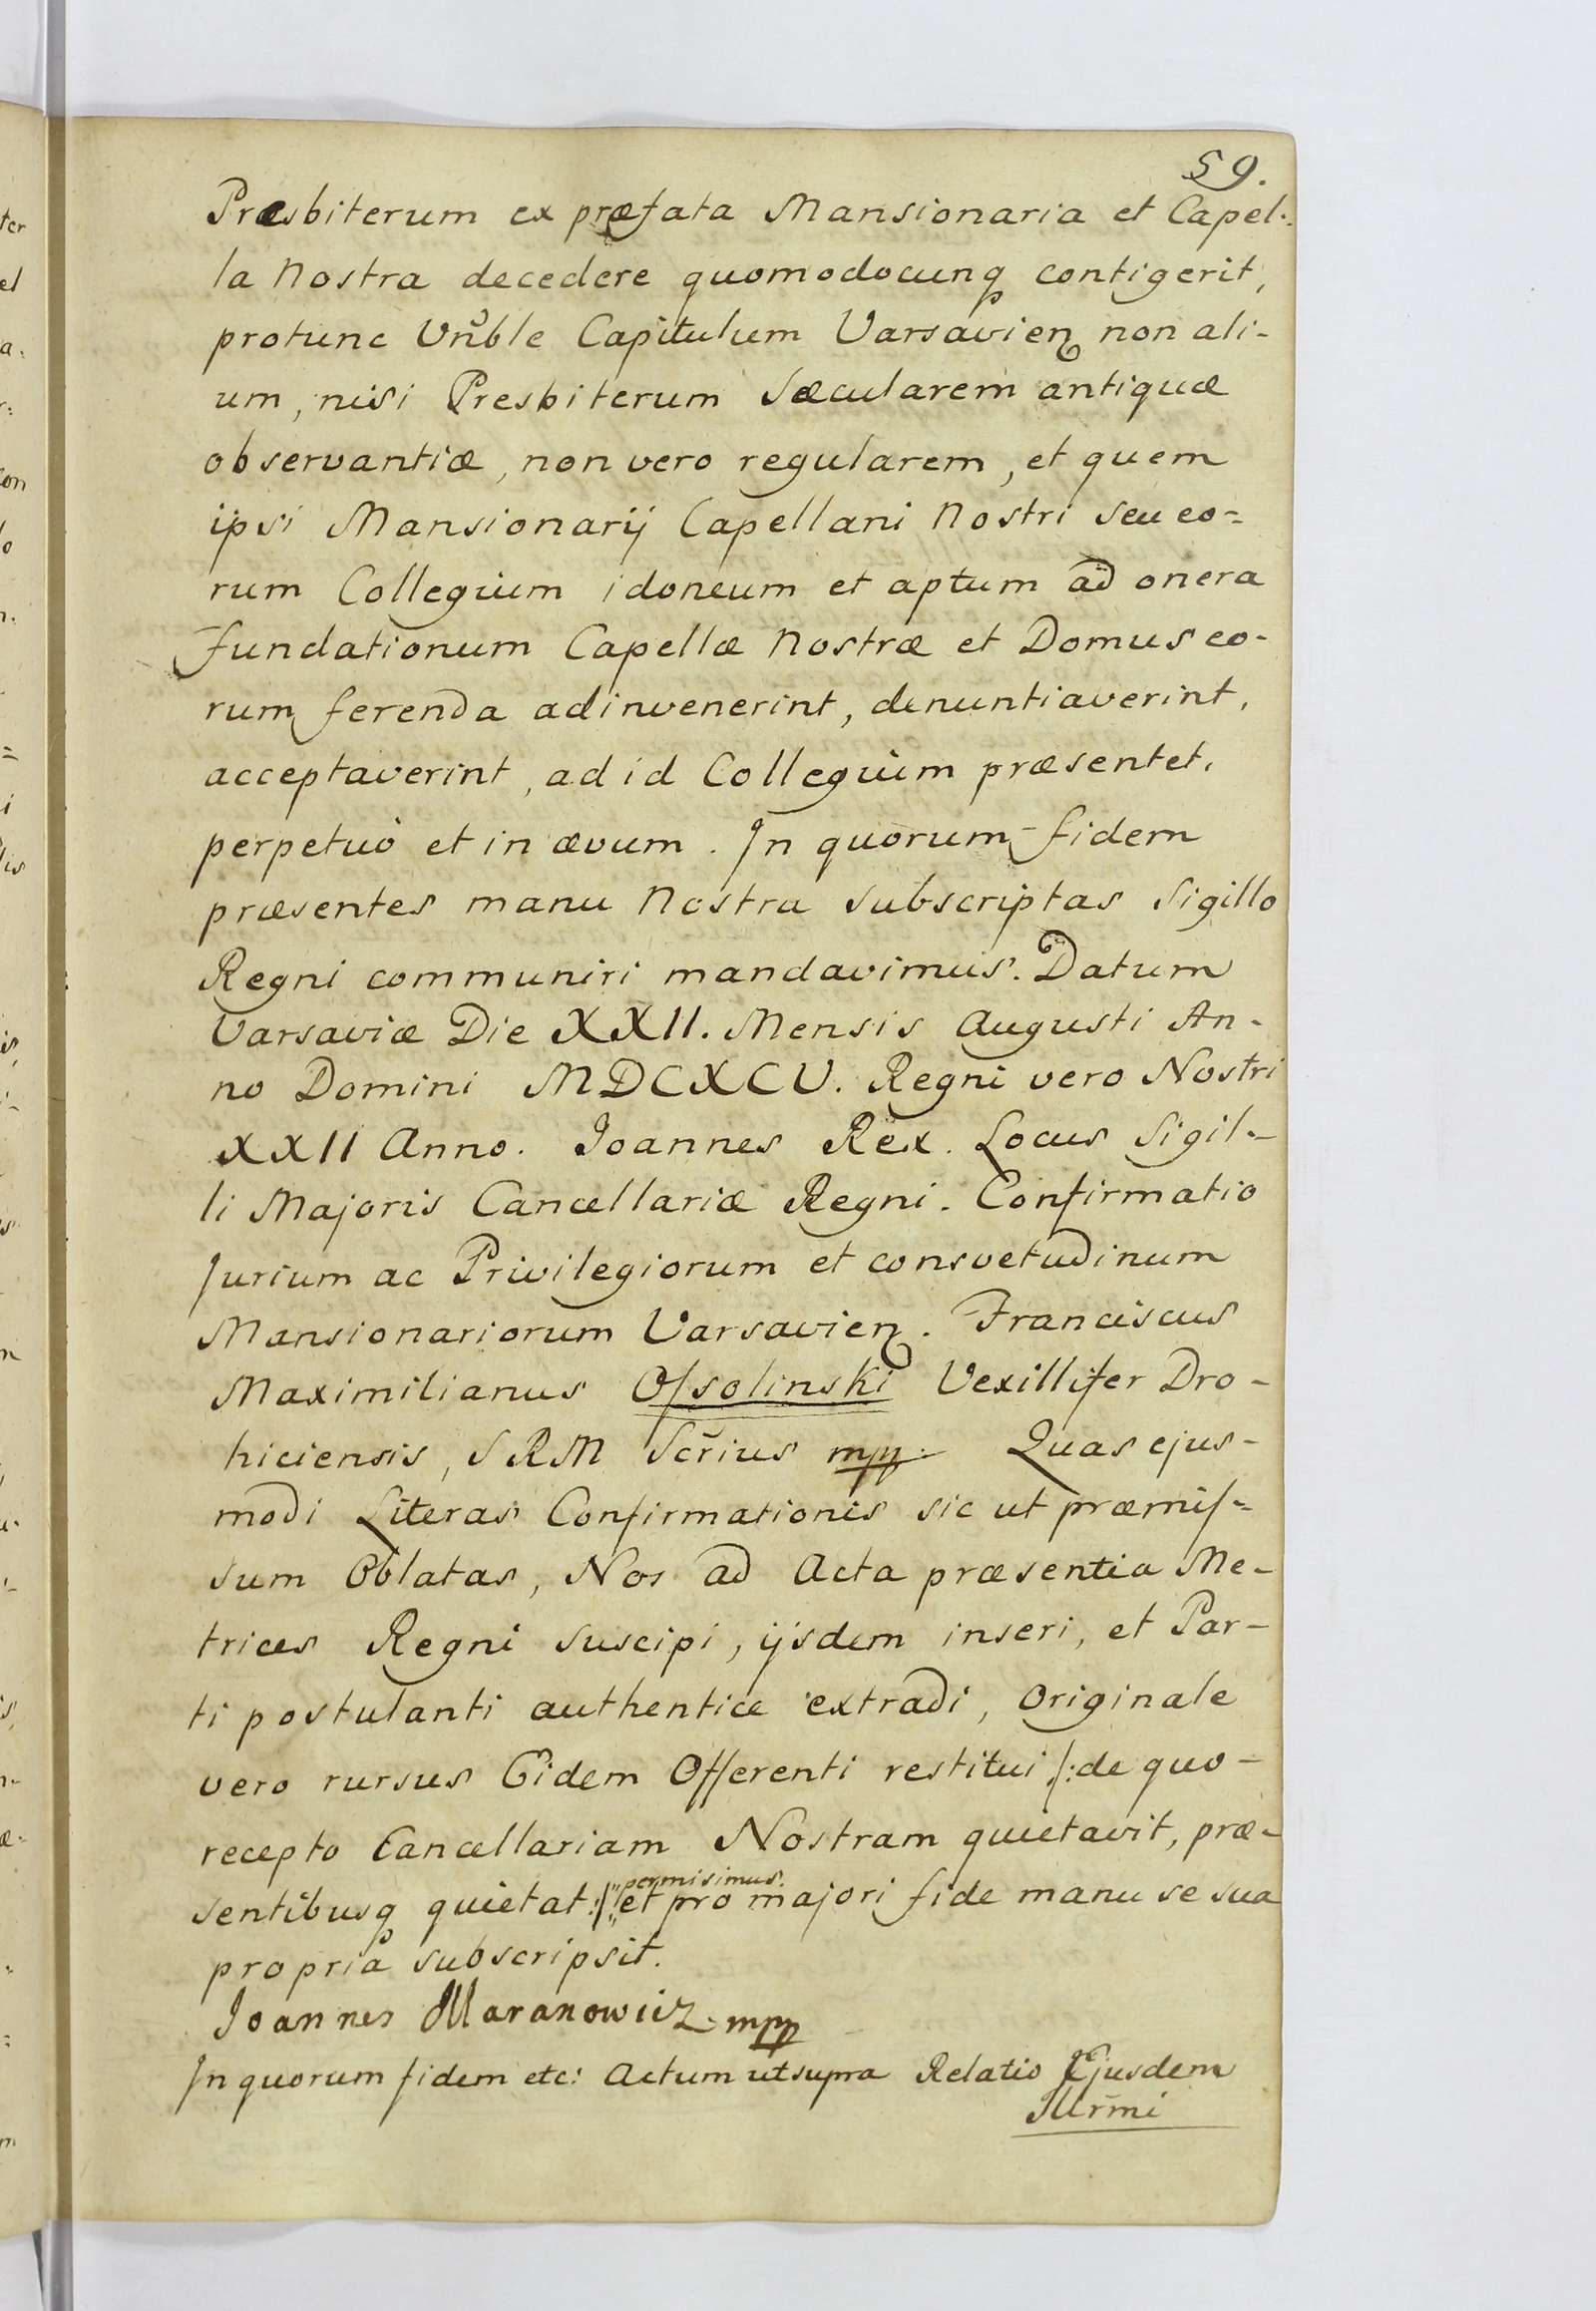 59.
Præsbiterum ex præfata Mansionaria et Capel-
la Nostra decedere quomodocunq contigerit,
protunc Vnble Capitulum Varsavien non ali-
um, nisi Presbiterum Sæcularem antiquæ
observantiæ, non vero regularem, et quem
ipsi Mansionarij Capellani Nostri seu eo=
rum Collegium idoneum et aptum ad onera
fundationum Capellæ Nostræ et Domus eo-
rum ferenda adinvenerint, denuntiaverint,
acceptaverint, ad id Collegium præsentet,
perpetuò et in ævum. In quorum fidem
præsentes manu Nostra subscriptas Sigillo
Regni communiri mandavimus. Datum
Varsaviæ Die XXII. Mensis Augusti An-
no Domini MDCXCV. Regni vero Nostri
XXII Anno. Joannes Rex. Locus Sigil-
li Majoris Cancellariæ Regni. Confirmatio
Jurium ac Privilegiorum et consvetudinum
Mansionariorum Varsavien. Franciscus
Maximilianus Ossolinski Vexillifer Dro-
hiciensis, SRM Scrius mpp. Quas ejus-
modi Literas Confirmationis sic ut præmis=
sum Oblatas, Nos ad Acta præsentia Me-
trices Regni suscipi, ijsdem inseri, et Par-
ti postulanti authentice extradi, Originale
vero rursus Eidem Offerenti restitui /: de quo-
recepto Cancellariam Nostram quietavit, præ-
permisimus.
sentibusq quietat :/ et pro majori fide manu se sua
propriâ subscripsit.
Joannes Maranowicz mpp
In quorum fidem etc: Actum ut supra Relatio Ejusdem
Illrmi